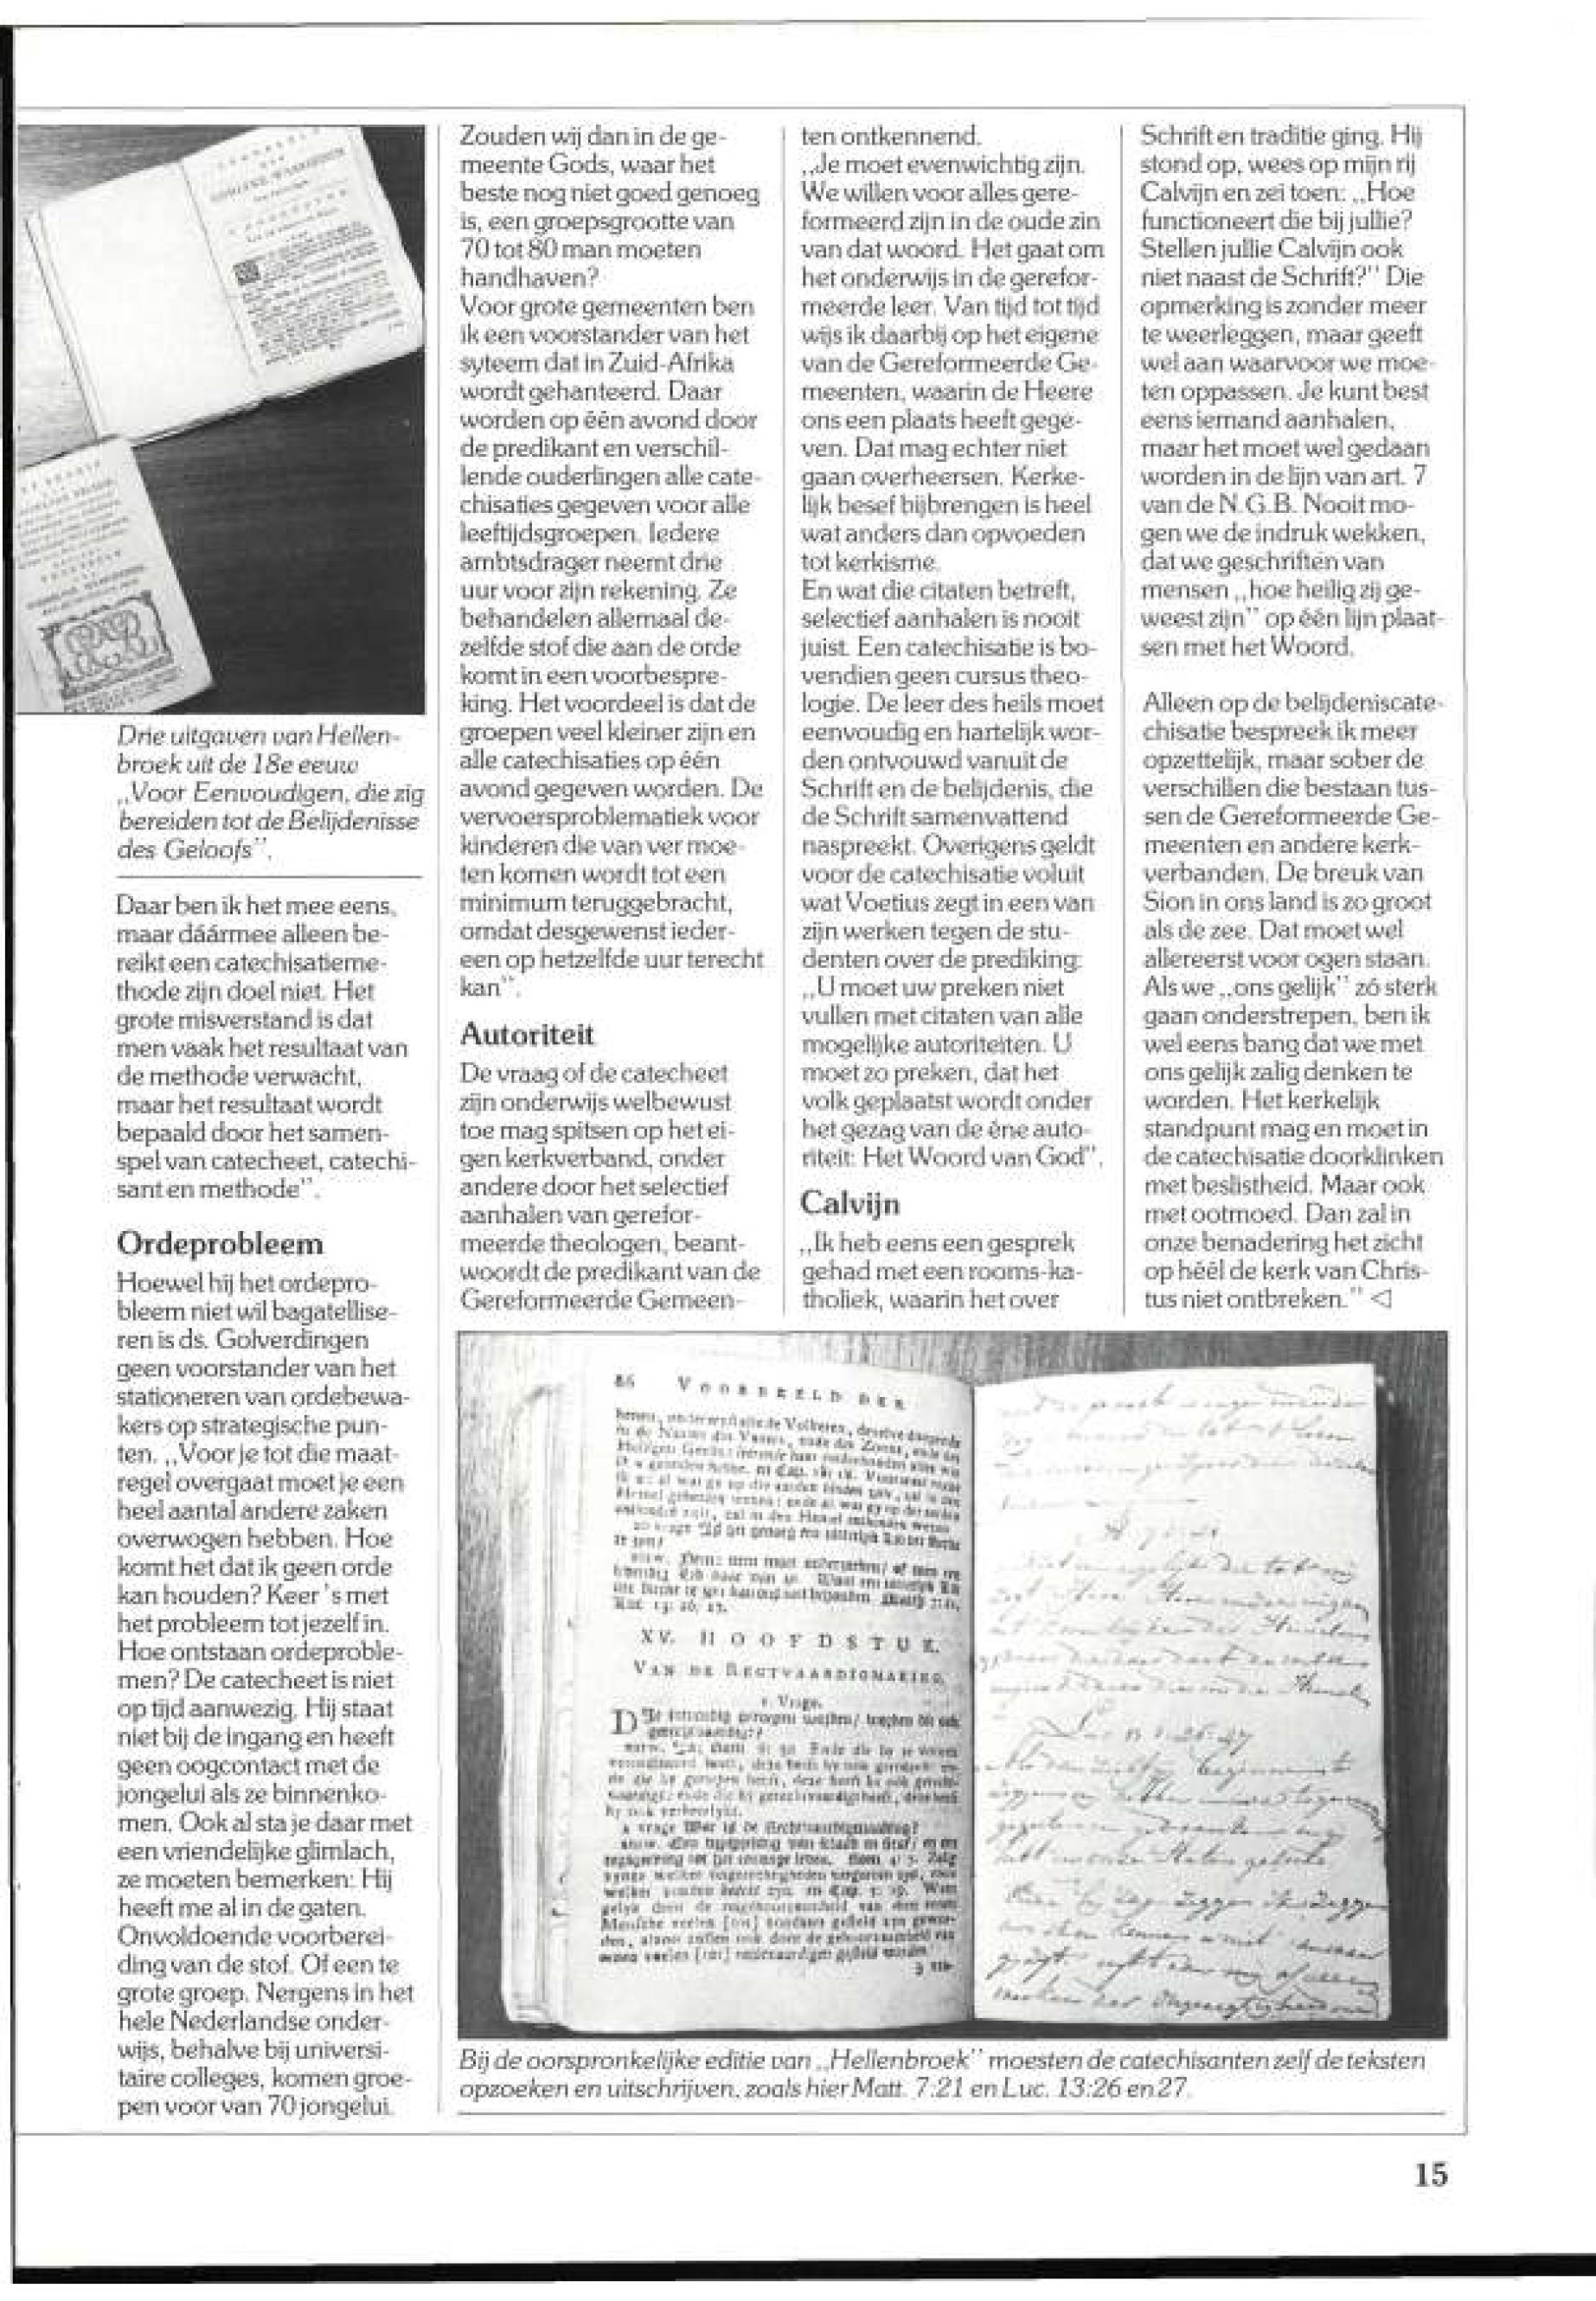 Drie uitgaven van Hellen-
broek uit de 18e eeuw
„Voor Eenvoudigen, die zig
bereiden tot de Belijdenisse
des Geloofs”.
Daar ben ik het mee eens,
maar dáármee alleen be-
reikt een catechisatieme-
thode zijn doel niet. Het
grote misverstand is dat
men vaak het resultaat van
de methode verwacht,
maar het resultaat wordt
bepaald door het samen-
spel van catecheet, catechi-
sant en methode”.
Ordeprobleem
Hoewel hij het ordepro-
bleem niet wil bagatellise-
ren is ds. Golverdingen
geen voorstander van het
stationeren van ordebewa-
kers op strategische pun-
ten. „Voor je tot die maat-
regel overgaat moet je een
heel aantal andere zaken
overwogen hebben. Hoe
komt het dat ik geen orde
kan houden? Keer 's met
het probleem tot jezelf in.
Hoe ontstaan ordeproble-
men? De catecheet is niet
op tijd aanwezig. Hij staat
niet bij de ingang en heeft
geen oogcontact met de
jongelui als ze binnenko-
men. Ook al sta je daar met
een vriendelijke glimlach,
ze moeten bemerken: Hij
heeft me al in de gaten.
Onvoldoende voorberei-
ding van de stof. Of een te
grote groep. Nergens in het
hele Nederlandse onder-
wijs, behalve bij universi-
taire colleges, komen groe-
pen voor van 70 jongelui.
Zouden wij dan in de ge-
meente Gods, waar het
beste nog niet goed genoeg
is, een groepsgrootte van
70 tot 80 man moeten
handhaven?
Voor grote gemeenten ben
ik een voorstander van het
syteem dat in Zuid-Afrika
wordt gehanteerd. Daar
worden op één avond door
de predikant en verschil-
lende ouderlingen alle cate-
chisaties gegeven voor alle
leeftijdsgroepen. Iedere
ambtsdrager neemt drie
uur voor zijn rekening. Ze
behandelen allemaal de-
zelfde stof die aan de orde
komt in een voorbespre-
king. Het voordeel is dat de
groepen veel kleiner zijn en
alle catechisaties op één
avond gegeven worden. De
vervoersproblematiek voor
kinderen die van ver moe-
ten komen wordt tot een
minimum teruggebracht,
omdat desgewenst ieder-
een op hetzelfde uur terecht
kan”.
Autoriteit
De vraag of de catecheet
zijn onderwijs welbewust
toe mag spitsen op het ei-
gen kerkverband, onder
andere door het selectief
aanhalen van gerefor-
meerde theologen, beant-
woordt de predikant van de
Gereformeerde Gemeen-
ten ontkennend.
„Je moet evenwichtig zijn.
We willen voor alles gere-
formeerd zijn in de oude zin
van dat woord. Het gaat om
het onderwijs in de gerefor-
meerde leer. Van tijd tot tijd
wijs ik daarbij op het eigene
van de Gereformeerde Ge-
meenten, waarin de Heere
ons een plaats heeft gege-
ven. Dat mag echter niet
gaan overheersen. Kerke-
lijk besef bijbrengen is heel
wat anders dan opvoeden
tot kerkisme.
En wat die citaten betreft,
selectief aanhalen is nooit
juist. Een catechisatie is bo-
vendien geen cursus theo-
logie. De leer des heils moet
eenvoudig en hartelijk wor-
den ontvouwd vanuit de
Schrift en de belijdenis, die
de Schrift samenvattend
naspreekt. Overigens geldt
voor de catechisatie voluit
wat Voetius zegt in een van
zijn werken tegen de stu-
denten over de prediking:
„U moet uw preken niet
vullen met citaten van alle
mogelijke autoriteiten. U
moet zo preken, dat het
volk geplaatst wordt onder
het gezag van de éne auto-
riteit: Het Woord van God”.
Calvijn
„Ik heb eens een gesprek
gehad met een rooms-ka-
tholiek, waarin het over
Schrift en traditie ging. Hij
stond op, wees op mijn rij
Calvijn en zei toen: „Hoe
functioneert die bij jullie?
Stellen jullie Calvijn ook
niet naast de Schrift?” Die
opmerking is zonder meer
te weerleggen, maar geeft
wel aan waarvoor we moe-
ten oppassen. Je kunt best
eens iemand aanhalen,
maar het moet wel gedaan
worden in de lijn van art. 7
van de N.G.B. Nooit mo-
gen we de indruk wekken,
dat we geschriften van
mensen „hoe heilig zij ge-
weest zijn” op één lijn plaat-
sen met het Woord.
Alleen op de belijdeniscate-
chisatie bespreek ik meer
opzettelijk, maar sober de
verschillen die bestaan tus-
sen de Gereformeerde Ge-
meenten en andere kerk-
verbanden. De breuk van
Sion in ons land is zo groot
als de zee. Dat moet wel
allereerst voor ogen staan.
Als we „ons gelijk” zó sterk
gaan onderstrepen, ben ik
wel eens bang dat we met
ons gelijk zalig denken te
worden. Het kerkelijk
standpunt mag en moet in
de catechisatie doorklinken
met beslistheid. Maar ook
met ootmoed. Dan zal in
onze benadering het zicht
op héél de kerk van Chris-
tus niet ontbreken.” ◁
86 VOORBEELD DER
XV. HOOFDSTUK.
VAN DE RECTVAARDIGMAKING.
1. Vrage.
Bij de oorspronkelijke editie van „Hellenbroek” moesten de catechisanten zelf de teksten
opzoeken en uitschrijven, zoals hier Matt. 7:21 en Luc. 13:26 en 27.
15